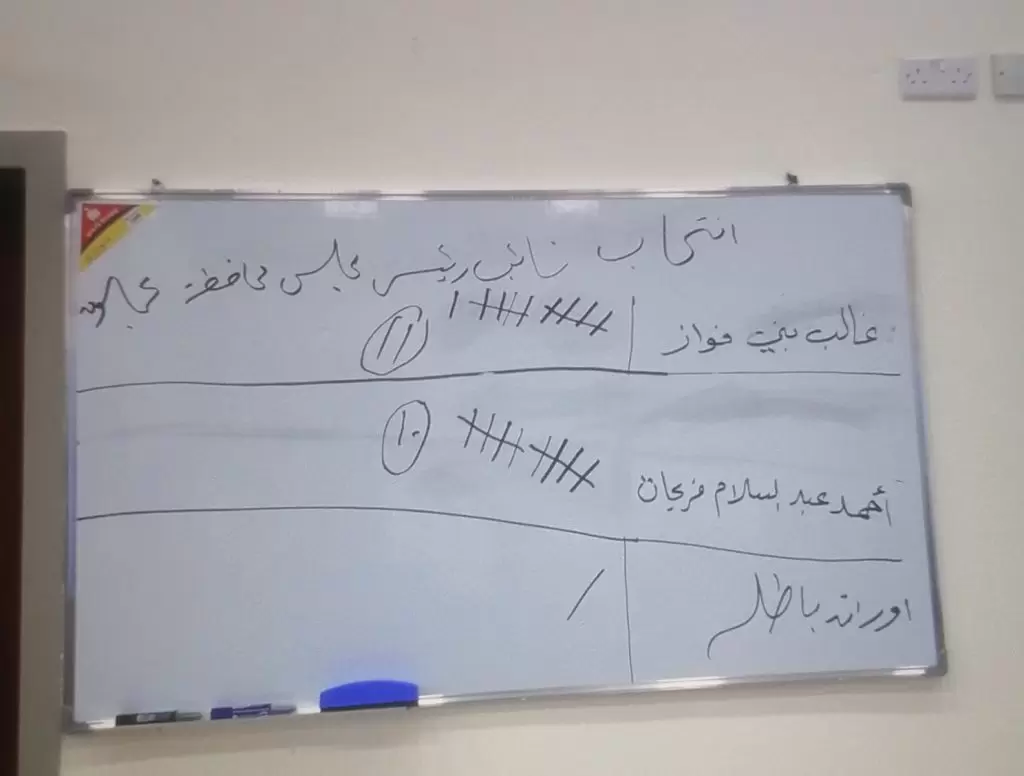 انتخاب نائب رئيس مجلس محافظة عجلون
غالب بني فواز ١١
أحمد عبد السلام فريحات ١٠
اوراق باطله